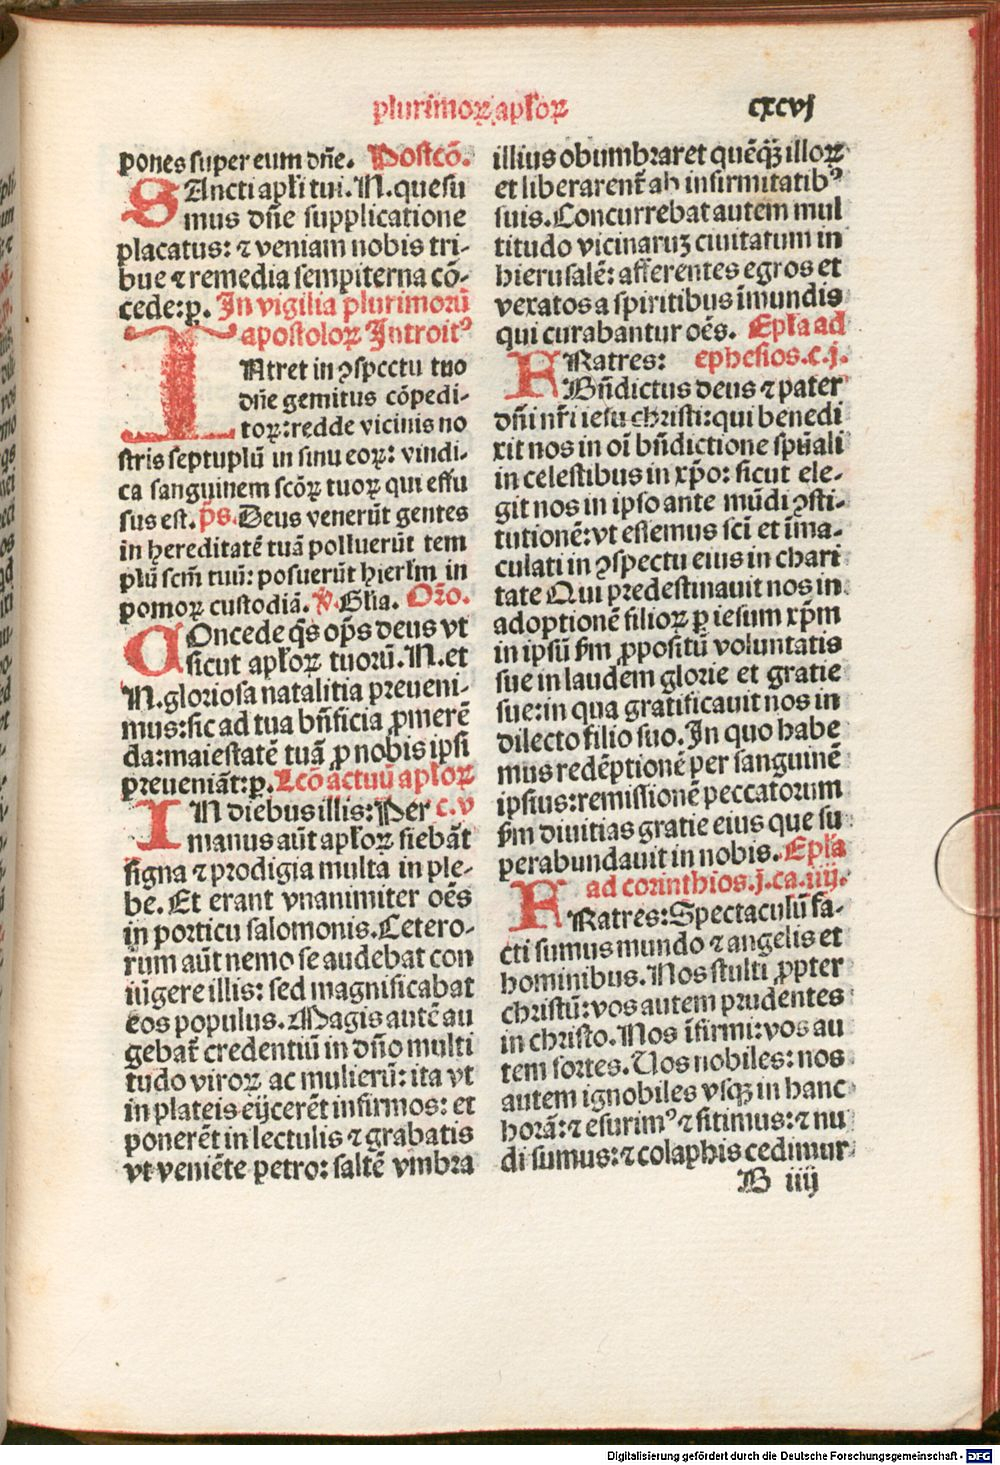 plurimoꝝ apl'oꝝ
cxcvj
pones super eum dñe. Postcō.
SAncti apl'i tui. N. quesu
mus dñe supplicatione
placatus: ⁊ veniam nobis tri-
bue ⁊ remedia sempiterna cō-
cede: ꝑ. In vigilia plurimorū
apostoloꝝ Introitꝰ
INtret in ꝯspectu tuo
dñe gemitus cōpedi-
toꝝ: redde vicinis no
stris septuplū in sinu eoꝝ: vindi-
ca sanguinem scōꝝ tuoꝝ qui effu
sus est. p̄s. Deus venerūt gentes
in hereditatē tuā polluerūt tem
plū scm̄ tuū: posuerūt hierl'm in
pomoꝝ custodiā. ℣. Gl'ia. Orō.
COncede q̄s op̄s deus vt
sicut apl'oꝝ tuorū. N. et
N. gloriosa natalitia preueni-
mus: sic ad tua bñficia ꝓmerē
da: maiestatē tuā ꝓ nobis ipsi
preueniāt: ꝑ. Lcō actuū apl'oꝝ
IN diebus illis: Per c. v
manus aūt apl'oꝝ fiebāt
signa ⁊ prodigia multa in ple-
be. Et erant vnanimiter oēs
in porticu salomonis. Cetero-
rum aūt nemo se audebat con
iūgere illis: sed magnificabat
eos populus. Magis autē au
gebat̄ credentiū in dño multi
tudo viroꝝ ac mulierū: ita vt
in plateis eijcerēt infirmos: et
ponerēt in lectulis ⁊ grabatis
vt veniēte petro: saltē vmbra
illius obumbraret quēqꝫ illoꝝ
et liberarent̄ ab infirmitatibꝰ
suis. Concurrebat autem mul
titudo vicinaruꝫ ciuitatum in
hierusalē: afferentes egros et
vexatos a spiritibus īmundis
qui curabantur oēs. Epl'a ad
FRatres: ephesios. c. j.
Bñdictus deus ⁊ pater
dñi nr̄i iesu christi: qui benedi
xit nos in oī bñdictione spūali
in celestibus in xp̄o: sicut ele-
git nos in ipso ante mūdi ꝯsti-
tutionē: vt essemus sci̅ et īma-
culati in ꝯspectu eius in chari
tate Qui predestinauit nos in
adoptionē filioꝝ ꝑ iesum xp̄m
in ipsū s̄m ꝓpositū voluntatis
sue in laudem glorie et gratie
sue: in qua gratificauit nos in
dilecto filio suo. In quo habe
mus redēptionē per sanguinē
ipsius: remissionē peccatorum
s̄m diuitias gratie eius que su
perabundauit in nobis. Epl'a
ad corinthios. j. ca. iiij.
FRatres: Spectaculū fa-
cti sumus mundo ⁊ angelis et
hominibus. Nos stulti ꝓpter
christū: vos autem prudentes
in christo. Nos īfirmi: vos au
tem fortes. Uos nobiles: nos
autem ignobiles vsqꝫ in hanc
horā: ⁊ esurimꝰ ⁊ sitimus: ⁊ nu
di sumus: ⁊ colaphis cedimur
B iiij
Digitalisierung gefördert durch die Deutsche Forschungsgemeinschaft - DFG